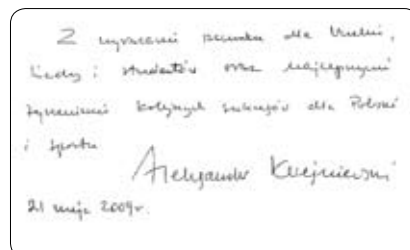 Z wyrazami szacunku dla Uczelni,
Kadry i studentów oraz najlepszymi
życzeniami kolejnych sukcesów dla Polski
i sportu
Aleksander Kwaśniewski
21 maja 2009r.